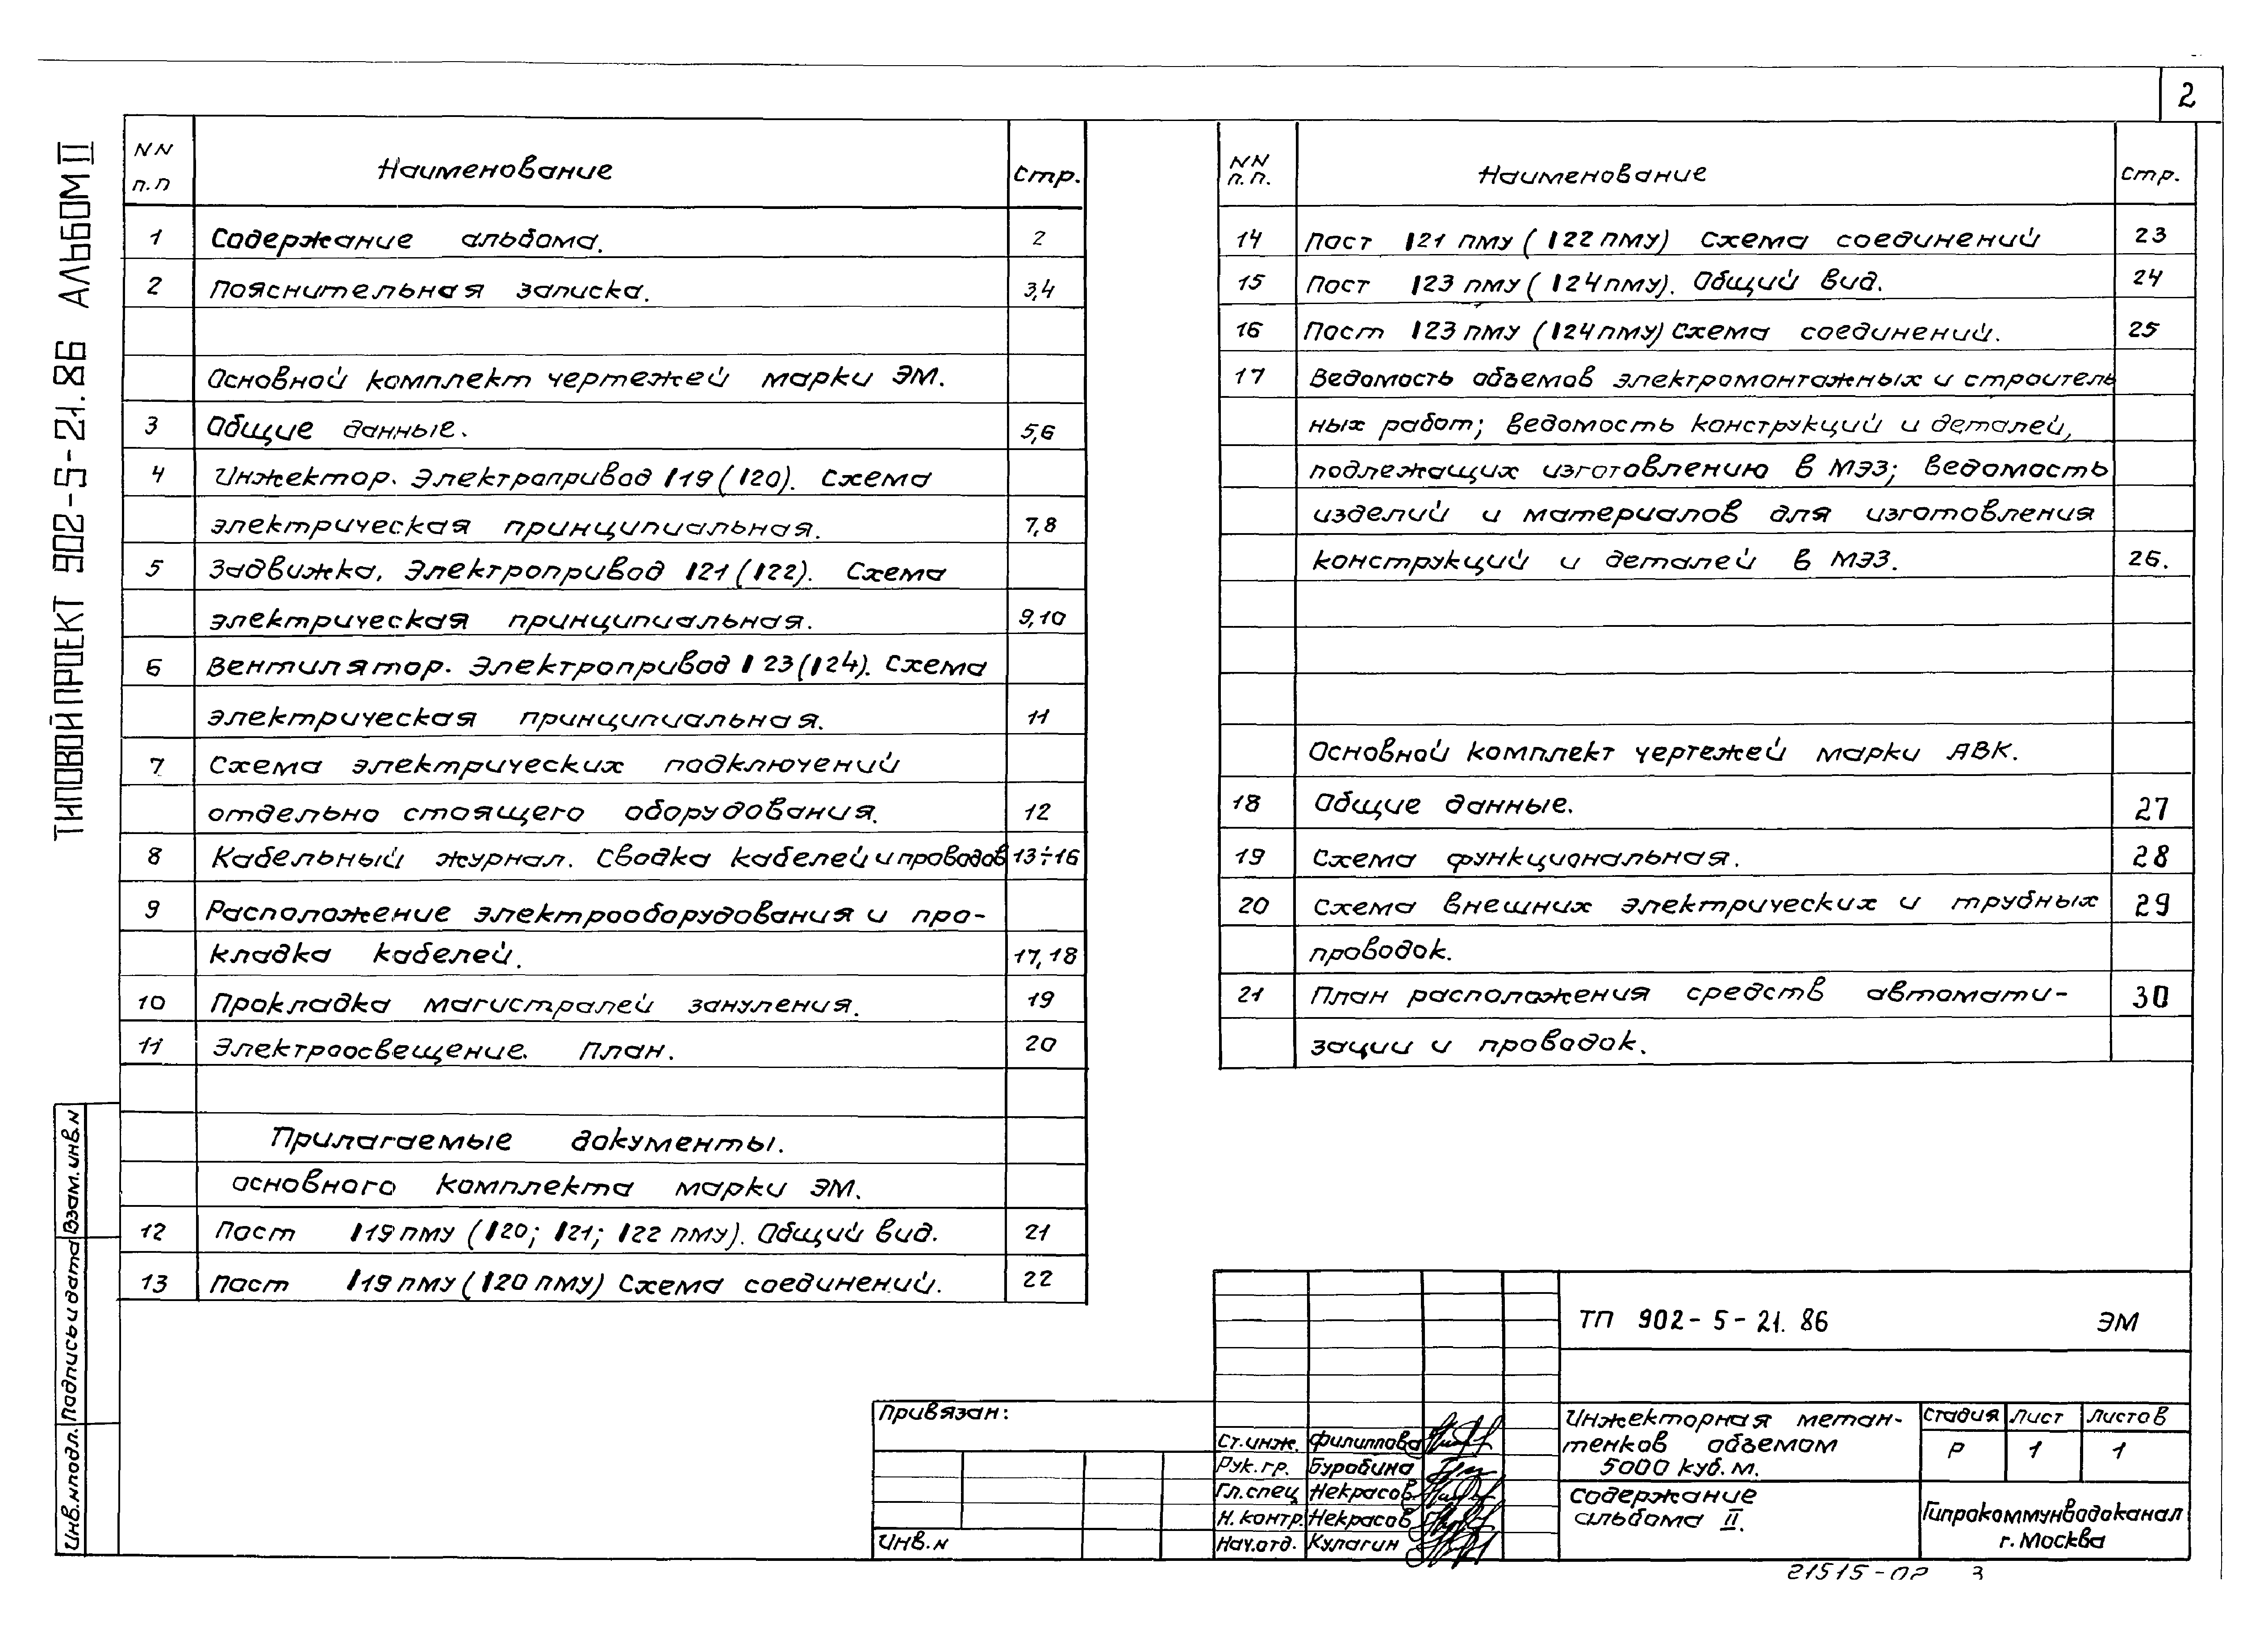 2
ТИПОВОЙ ПРОЕКТ 902-5-21.86 АЛЬБОМ II
NN п.п Наименование Стр.
1 Содержание альбома. 2
2 Пояснительная записка. 3,4
Основной комплект чертежей марки ЭМ.
3 Общие данные. 5,6
4 Инжектор. Электропривод 119 (120). Схема
электрическая принципиальная. 7,8
5 Задвижка. Электропривод 121 (122). Схема
электрическая принципиальная. 9,10
6 Вентилятор. Электропривод 123 (124). Схема
электрическая принципиальная. 11
7 Схема электрических подключений
отдельно стоящего оборудования. 12
8 Кабельный журнал. Сводка кабелей и проводов 13÷16
9 Расположение электрооборудования и про-
кладка кабелей. 17,18
10 Прокладка магистралей зануления. 19
11 Электроосвещение. План. 20
Прилагаемые документы.
основного комплекта марки ЭМ.
12 Пост 119 ПМУ (120; 121; 122 ПМУ). Общий вид. 21
13 Пост 119 ПМУ (120 ПМУ) Схема соединений. 22
NN п.п. Наименование стр.
14 Пост 121 ПМУ (122 ПМУ) Схема соединений 23
15 Пост 123 ПМУ (124 ПМУ). Общий вид. 24
16 Пост 123 ПМУ (124 ПМУ) Схема соединений. 25
17 Ведомость объемов электромонтажных и строитель
ных работ; ведомость конструкций и деталей,
подлежащих изготовлению в МЭЗ; ведомость
изделий и материалов для изготовления
конструкций и деталей в МЭЗ. 26.
Основной комплект чертежей марки АВК.
18 Общие данные. 27
19 Схема функциональная. 28
20 Схема внешних электрических и трубных 29
проводок.
21 План расположения средств автомати- 30
зации и проводок.
Инв.N подл. Подпись и дата Взам.инв.N
Привязан:
Инв.N
Ст.инж. Филиппова
Рук.гр. Бурабина
Гл.спец Некрасов
Н.контр. Некрасов
Нач.отд. Кулагин
ТП 902-5-21.86 ЭМ
Инжекторная метан-
тенков объемом
5000 куб.м.
Стадия Лист Листов
Р 1 1
Содержание
альбома II.
Гипрокоммунводоканал
г. Москва
21515-02 3